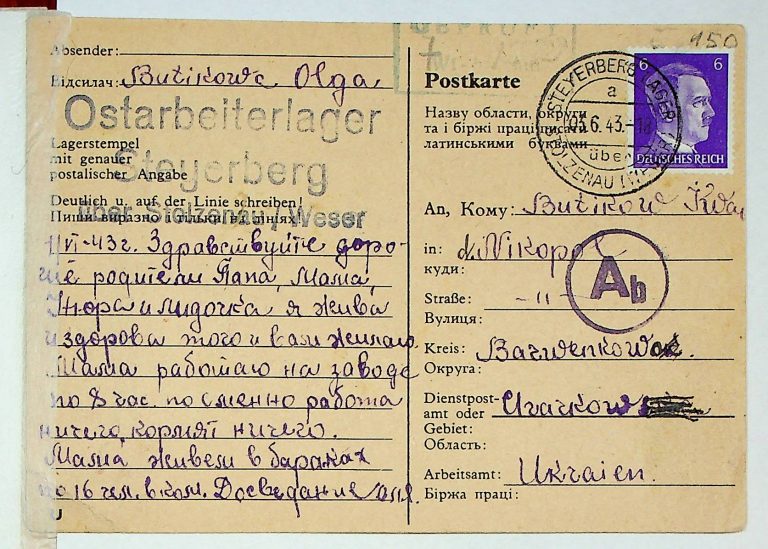 Absender:
Відсилач: Butikowa Olga
Ostarbeiterlager
Steyerberg
über Stolzenau / Weser
Lagerstempel
mit genauer
postalischer Angabe
Deutlich u. auf der Linie schreiben!
Пиши виразно і тільки на лініях!
1/VI-43 г. Здравствуйте доро-
гие родители Папа, Мама,
Нюра и лидочка я жива
и здорова того и вам желаю.
Мама работаю на заводе
по 8 час. посменно работа
ничего, кормят ничего.
Мама живем в бараках
по 16 чел. в ком. Досведание
GEPRÜFT
150
Postkarte
Назву области, округи
та і біржі праці писати
латинськими буквами
STEYERBERG LAGER
a
03.6.43.-18
über
STOLZENAU (WESER)
6 6
DEUTSCHES REICH
An, Кому: Butikow Iwan
in: d. Nikopol
куди:
Straße: -"-
Вулиця:
Ab
Kreis: Barwenkowo.
Округа:
Dienstpost-
amt oder
Gebiet:
Область:
Arbeitsamt: Ukraien.
Біржа праці: